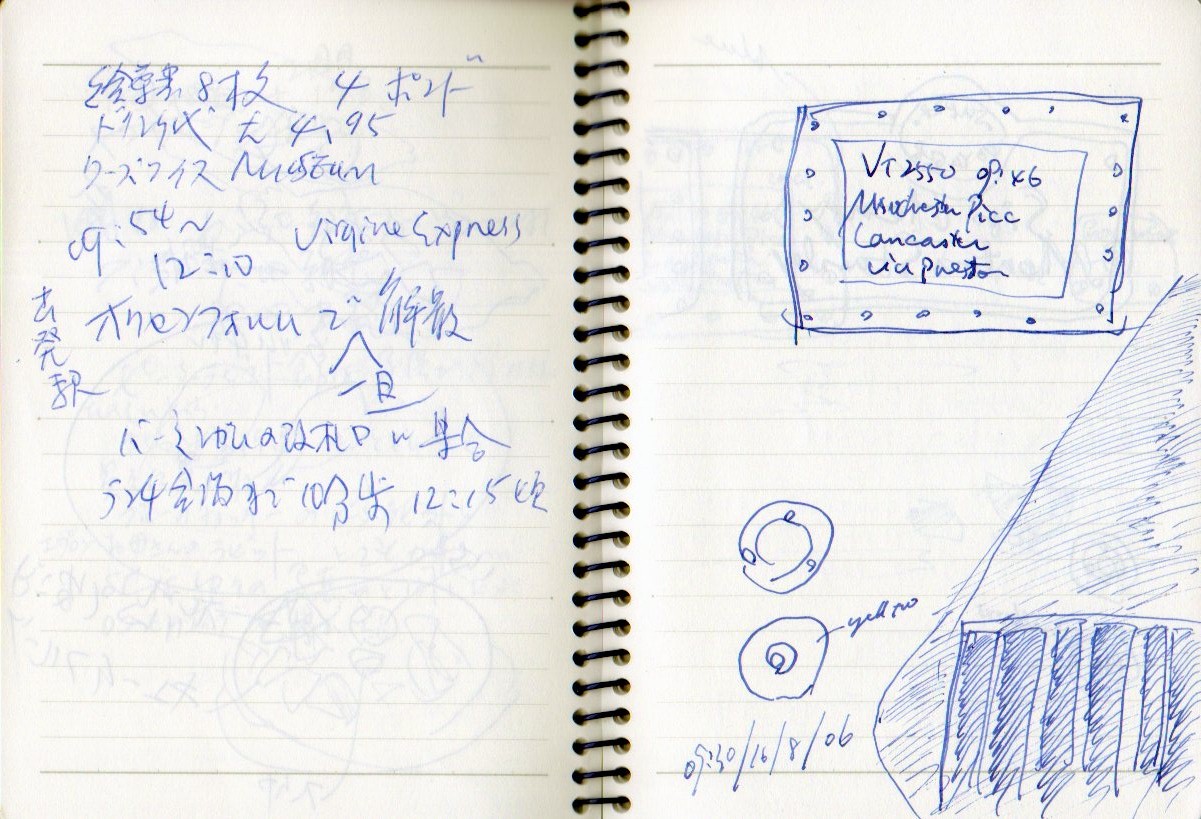 絵葉書 8枚 4 ポンド
ドリンク代 4.95
ワーズワイス MUSEUM
09:54〜
12:10 Virgine Express
オクセンフォルムで解散
一旦
バーミンガムの改札口 集合
まで10分歩 12:15
VT2550 09:46
Manchester Picc
Lancaster
via Preston
yellow
09:30/16/8/06